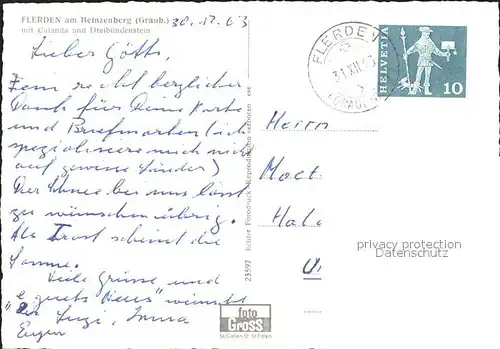 FLERDEN am Heinzenberg (Graub.)
mit Catanda und Dreibündenstein
30.12.63
Lieber Götti,
Dein recht herzlicher
Dank für Deine Karte
und Briefmarken (ich
spezialisiere mich nicht
auf gewisse Länder)
Der Schnee bei uns lässt
zu wünschen übrig.
Als Trost scheint die
Sonne.
Viele Grüsse und
"e guets Neus" wünscht
Suzi, Imma
Eugen
FLERDEN
31.XII.63
HELVETIA
10
Herrn
Hal
privacy protection
Datenschutz
23597 Echter Fotodruck - Reproduktion verboten
foto
GROSS
St.Gallen